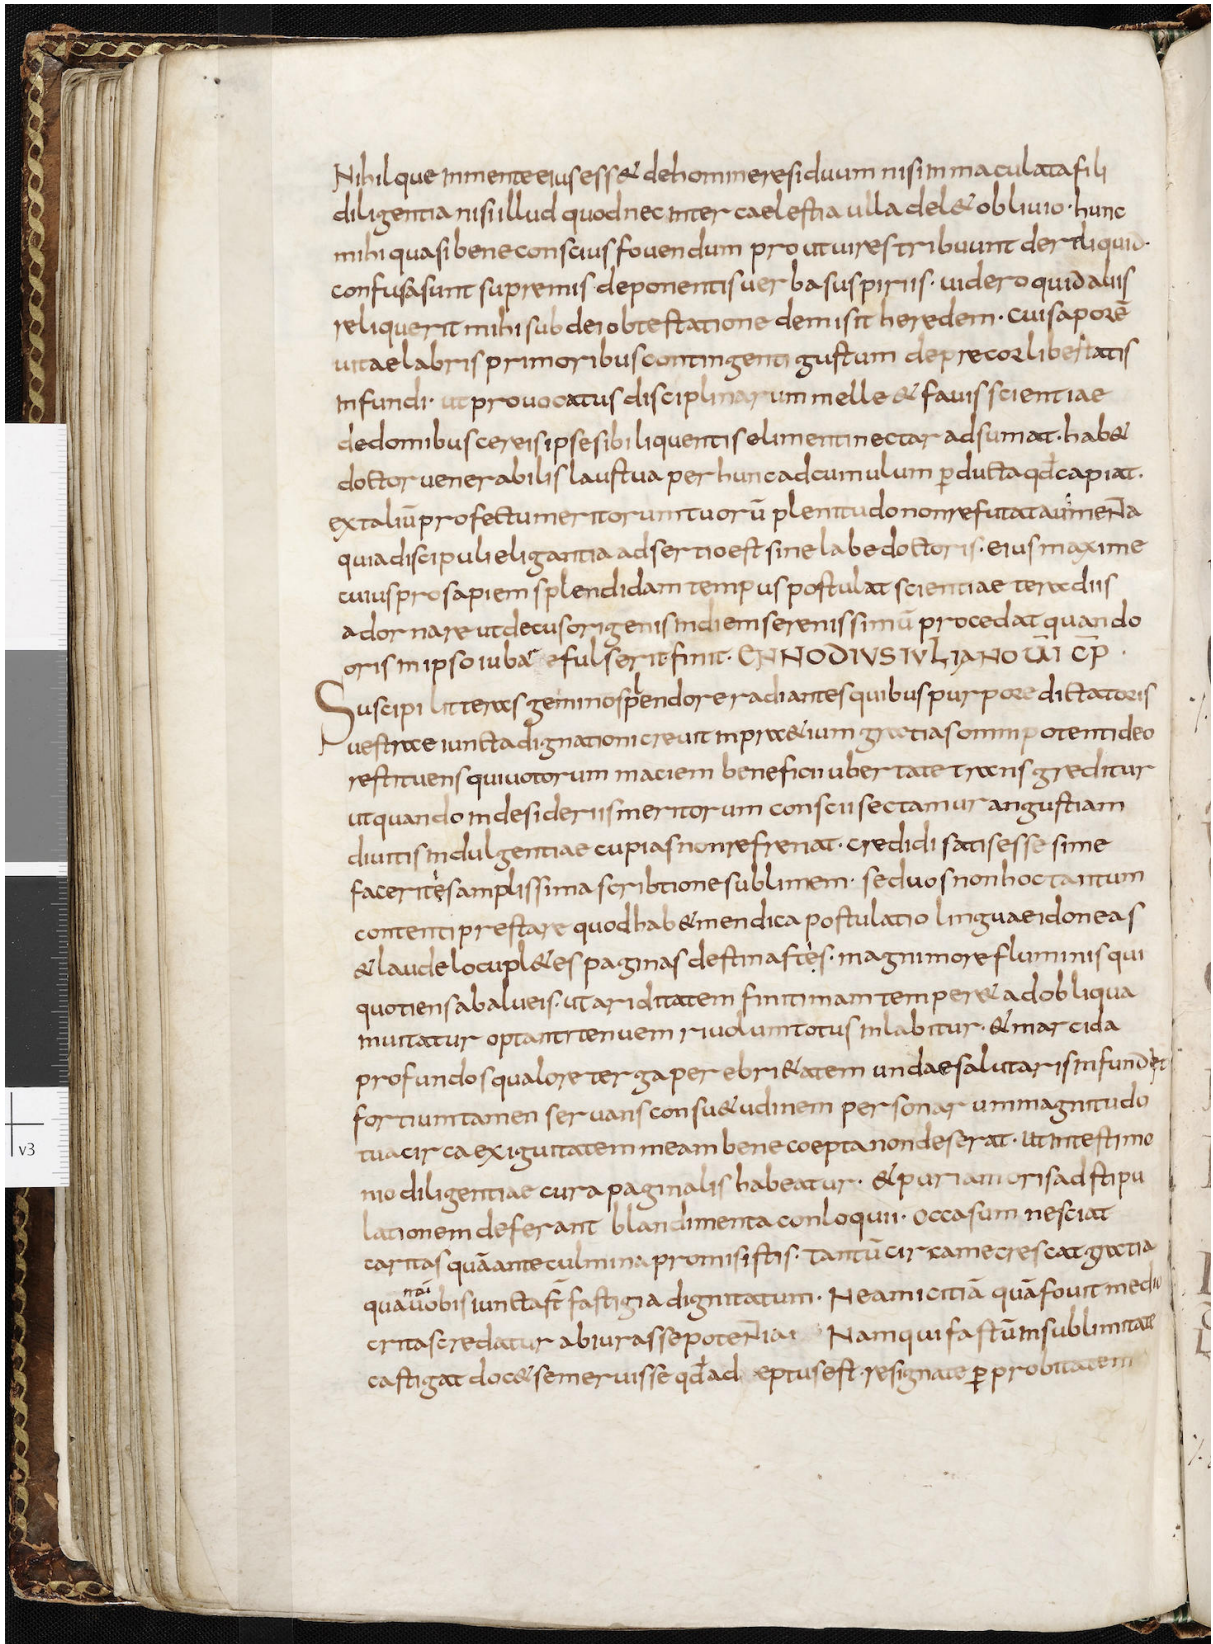 Nihilque inmente eius ess& dehomine residuum nisi inmaculata fili
diligentia nisi illud quod nec inter caelestia ulla del& oblivio · hunc
mihi quasi bene conscius fovendum prout vires tribuunt dereliquid ·
confusa sunt supremis deponentis verba suspiriis · videro quid avis
reliquerit mihi sub dei obtestatione demisit heredem · cui saporē
vitae labris primoribus contingenti gustum deprecor libertatis
infundi · ut provocatus disciplinarum melle & favis scientiae
dedomibus cereis ipse sibi liquentis elimenti nectar adsumat · hab&
doctor venerabilis laus tua per hunc ad cumulum p̄ducta qđ capiat ·
ex taliū profectu meritorum tuorū plenitudo non refutat aumenta
quia discipuli eligantia adsertio est sine labe doctoris · eius maxime
cuius prosapiem splendidam tempus postulat scientiae teradiis
adornare ut decus origenis indiem serenissimū procedat quando
oris in ipso iubar efulserit · finit · ENNODIVS IVLIANO ŪI C̄P ·
Suscipi litteras gemino splendore radiantes quibus purpore dictatoris
vestrae iuncta dignationi crevit in pra&ium gratias omnipotenti deo
restituens qui votorum maciem beneficii ubertate transgreditur
ut quando in desideriis meritorum conscii sectamur angustiam
divitis indulgentiae cupias non refrenat · credidi satis esse si me
faceritès amplissima scribtione sublimem · sed vos non hoc tantum
contenti prestare quod hab& mendica postulatio linguae idoneas
& laude locupl&es paginas destinastès · magni more fluminis qui
quotiens ab alveis · ut ariditatem finitimam temper& ad obliqua
mutatur optanti tenuem rivolum totus inlabitur · & marcida
profundo squalore terga per ebri&atem undae salutaris infundèt
fortium tamen servans consu&udinem personarum magnitudo
tua circa exiguitatem meam bene coepta non deserat · ut in testimo
nio diligentiae cura paginalis habeatur · & puri amoris adstipu
lationem deferant blandimenta conloquii · occasum nesciat
caritas quā ante culmina promisistis · tantū circa me crescat gratia
quā vobis iuncta st̄ fastigia dignitatum · Ne amicitiā quā fovit medio
critas credatur abiurasse potentia · Nam qui fastū in sublimitate
castigat doc& se meruisse qđ adeptus est · resignate p̄ probitatem